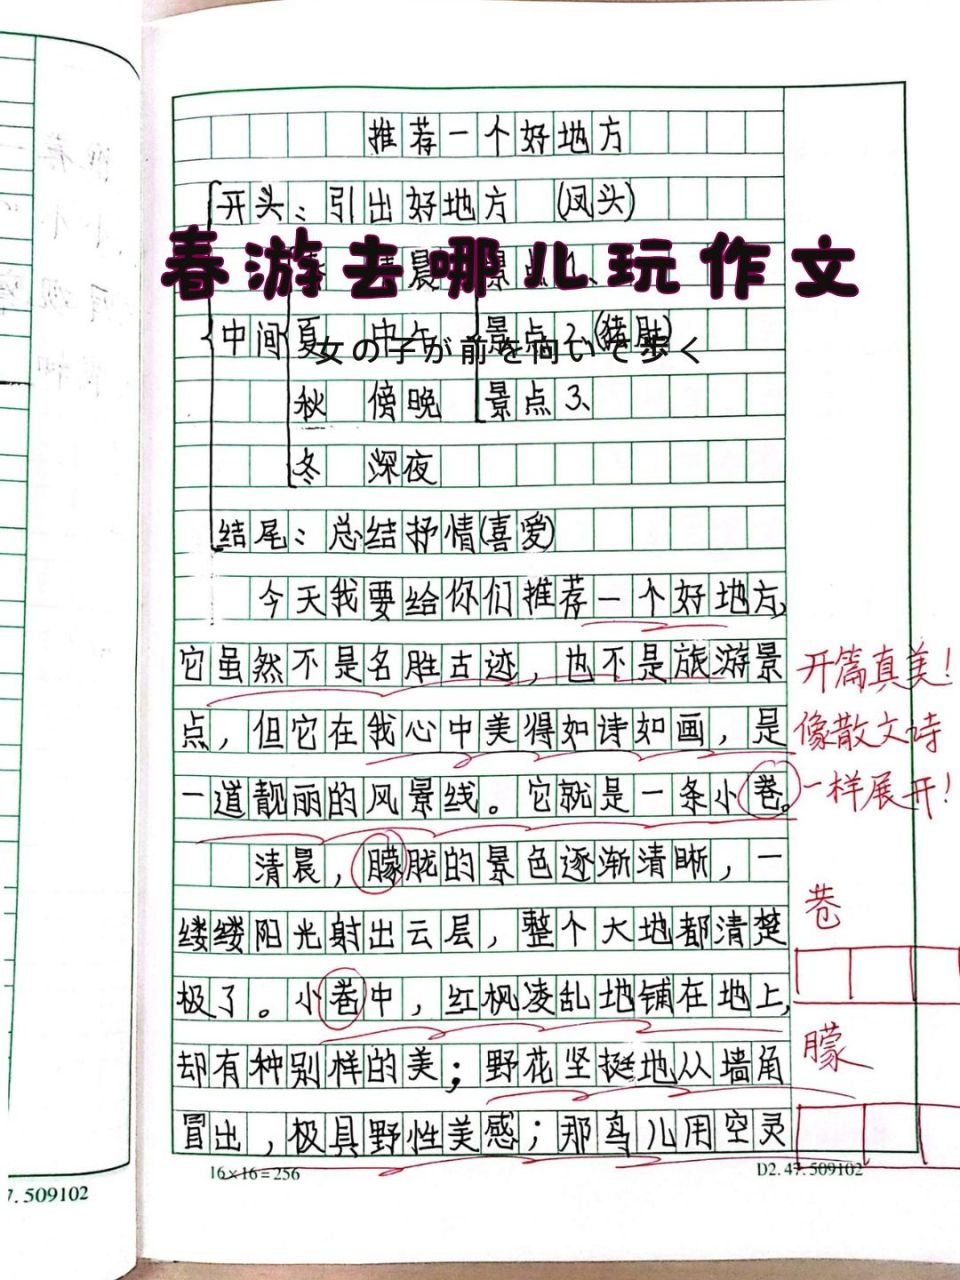 推荐一个好地方
开头：引出好地方 (凤头)
春游去哪儿玩作文
晨 景点1、
中间 夏 中午 景点2、(猪肚)
女の子が前を向いて歩く
秋 傍晚 景点3、
冬 深夜
结尾：总结抒情(喜爱)
今天我要给你们推荐一个好地方，
它虽然不是名胜古迹，也不是旅游景
点，但它在我心中美得如诗如画，是
一道靓丽的风景线。它就是一条小巷。
开篇真美！
像散文诗
一样展开！
清晨，朦胧的景色逐渐清晰，一
缕缕阳光射出云层，整个大地都清楚
极了。小巷中，红枫凌乱地铺在地上，
却有种别样的美；野花坚挺地从墙角
冒出，极具野性美感；那鸟儿用空灵
巷
朦
16×16=256
D2.47.509102
7.509102